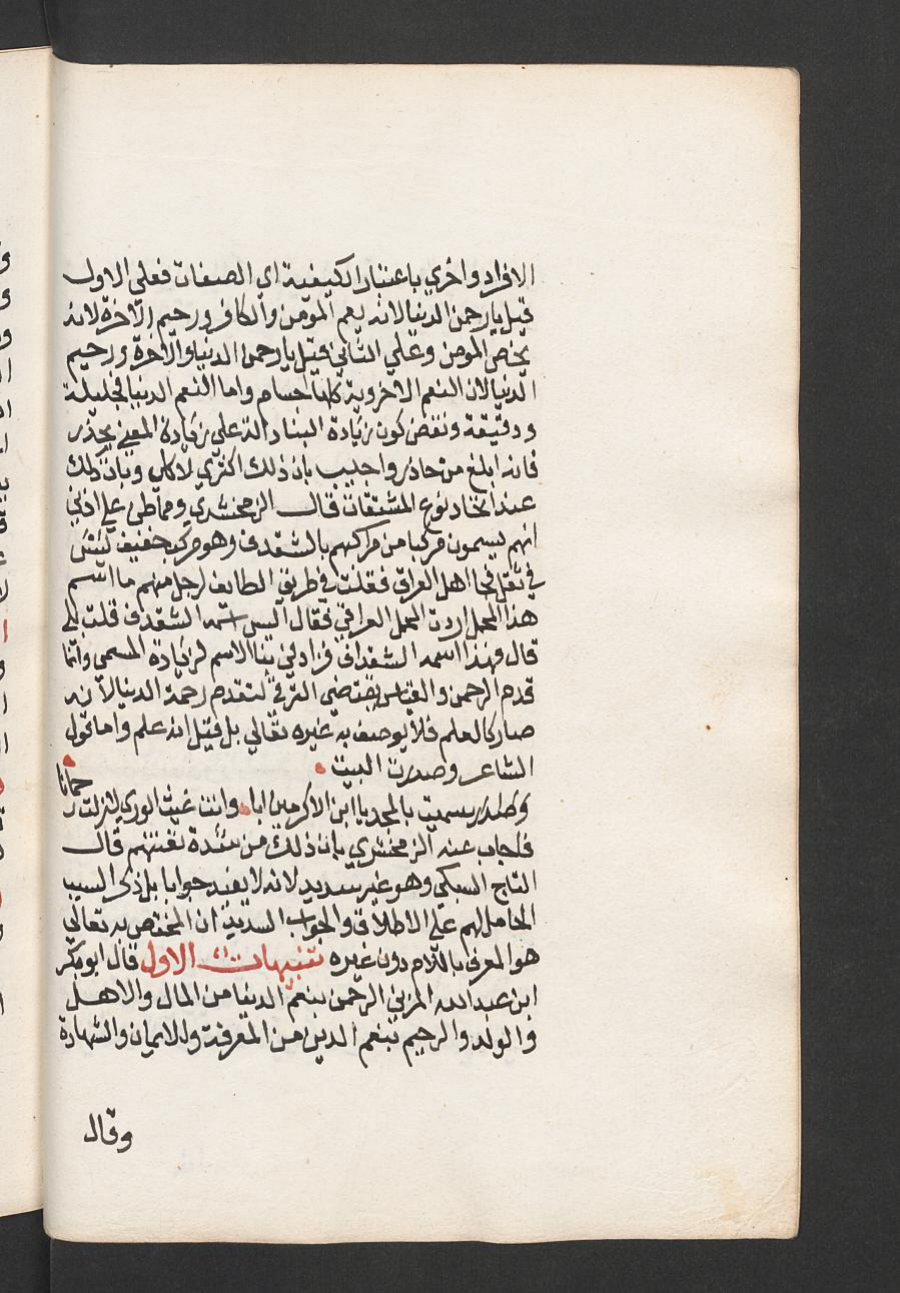 الافراد واخري باعتبار الكيفية اي الصفات فعلي الاول
قيل يا رحمن الدنيا لانه يعم المومن والكافر ورحيم الآخرة لانه
يخص المومن وعلي الثاني قيل يا رحمن الدنيا والآخرة ورحيم
الدنيا لان النعم الاخروية كلها جسام واما النعم الدنيا فجليلة
ودقيقة ونقض كون زيادة البناء دالة علي زيادة المعني بحذر
فانه ابلغ من حاذر واجيب بان ذلك اكثري لا كلي وبان ذلك
عند اتحاد نوع المشتقات قال الزمخشري ومما طن علي اذني
انهم يسمون مركبا من مراكبهم بالشقدف وهو مركب خفيف ليس
في ثقل محا اهل العراق فقلت في طريق الطايف لرجل منهم ما اسم
هذا المحمل اردت المحمل العراقي فقال اليس اسمه الشقدف قلت بلي
قال فهذا اسمه الشقنداف فزاد في بنا الاسم لزيادة المسمي وانما
قدم الرحمن والقياس يقتضي الترقي لتقدم رحمة الدنيا لانه
صار كالعلم فلا يوصف به غيره تعالي بل قيل انه علم واما قول
الشاعر وصدرت البيت
وصدره سميت بالمجد يا ابن الاكرمين ابا وانت غيث الوري لا زلت رحمانا
فاجاب عنه الزمخشري بان ذلك من شدة تعنتهم قال
التاج السبكي وهو غير سديد لانه لا يفيد جوابا بل ذكر السبب
الحامل لهم علي الاطلاق والجواب السديد ان المختص به تعالي
هو المعرف باللام دون غيره تنبيهات الاول قال ابو بكر
ابن عبد الله المزني الرحمن بنعم الدنيا من المال والاهل
والولد والرحيم بنعم الدين من المعرفة والايمان والشهادة
وقال